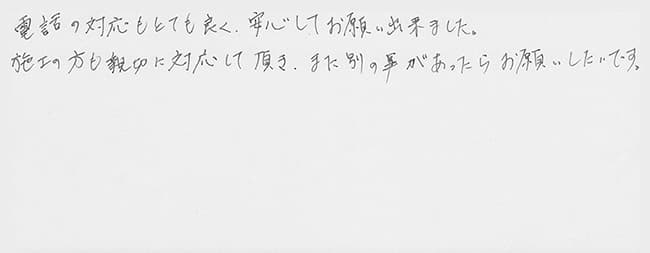 電話の対応もとても良く、安心してお願い出来ました。
施工の方も親切に対応して頂き、また別の事があったらお願いしたいです。